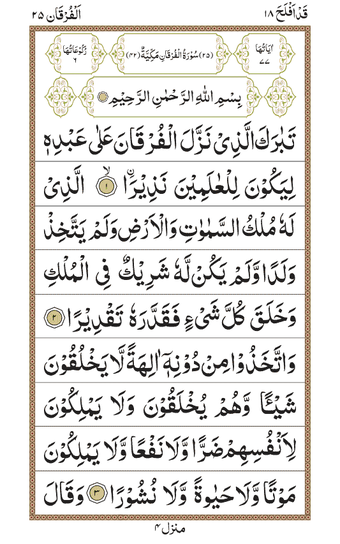 قَدْ اَفْلَحَ ١٨
اَلْفُرْقَان ٢٥
اٰيَاتُهَا ٧٧
(٢٥) سُوْرَةُ الْفُرْقَانِ مَكِّيَّةٌ (٤٢)
رُكُوْعَاتُهَا ٦
بِسْمِ اللّٰهِ الرَّحْمٰنِ الرَّحِيْمِ
تَبٰرَكَ الَّذِيْ نَزَّلَ الْفُرْقَانَ عَلٰى عَبْدِهٖ
لِيَكُوْنَ لِلْعٰلَمِيْنَ نَذِيْرًا ۙ﴿١﴾ الَّذِيْ
لَهٗ مُلْكُ السَّمٰوٰتِ وَالْاَرْضِ وَلَمْ يَتَّخِذْ
وَلَدًا وَّلَمْ يَكُنْ لَّهٗ شَرِيْكٌ فِي الْمُلْكِ
وَخَلَقَ كُلَّ شَيْءٍ فَقَدَّرَهٗ تَقْدِيْرًا ﴿٢﴾
وَاتَّخَذُوْا مِنْ دُوْنِهٖٓ اٰلِهَةً لَّا يَخْلُقُوْنَ
شَيْـًٔا وَّهُمْ يُخْلَقُوْنَ وَلَا يَمْلِكُوْنَ
لِاَنْفُسِهِمْ ضَرًّا وَّلَا نَفْعًا وَّلَا يَمْلِكُوْنَ
مَوْتًا وَّلَا حَيٰوةً وَّلَا نُشُوْرًا ﴿٣﴾ وَقَالَ
منزل ٤